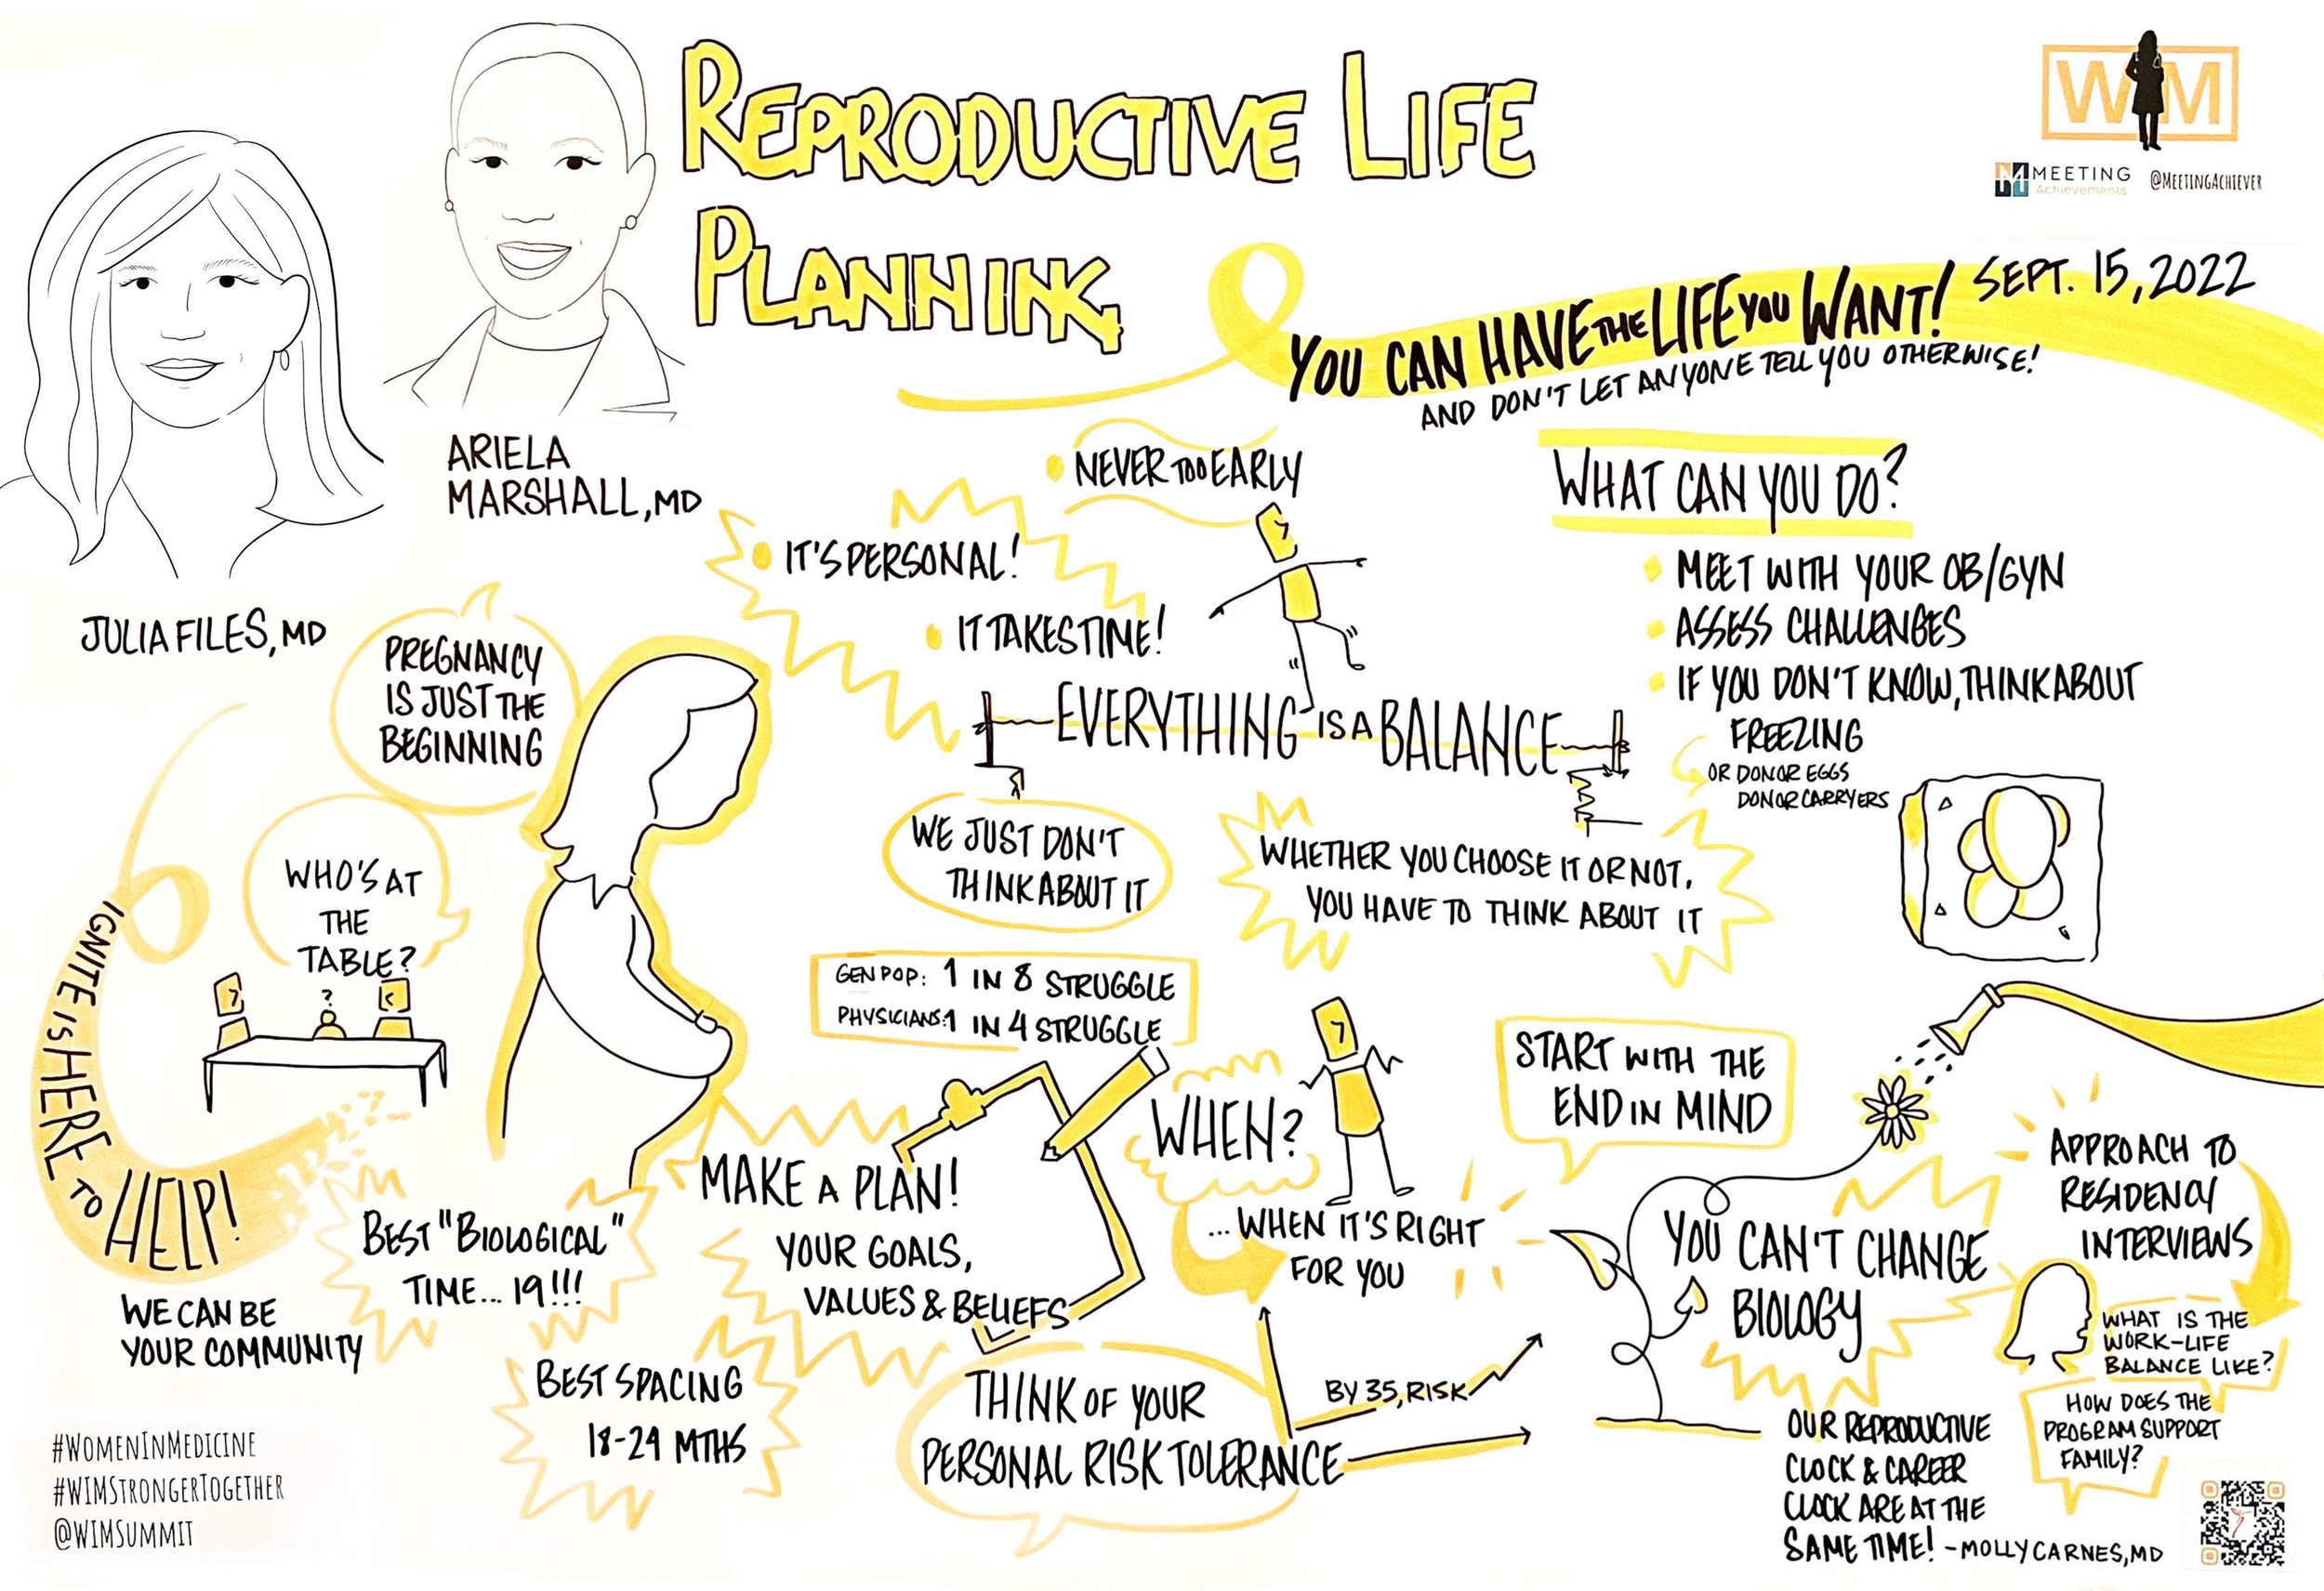 REPRODUCTIVE LIFE
PLANNING
WIM
MEETING
Achievements
@MEETINGACHIEVER
SEPT. 15, 2022
YOU CAN HAVE THE LIFE YOU WANT!
AND DON'T LET ANYONE TELL YOU OTHERWISE!
ARIELA
MARSHALL, MD
JULIA FILES, MD
NEVER TOO EARLY
IT'S PERSONAL!
IT TAKES TIME!
EVERYTHING IS A BALANCE
WHAT CAN YOU DO?
MEET WITH YOUR OB/GYN
ASSESS CHALLENGES
IF YOU DON'T KNOW, THINK ABOUT
FREEZING
OR DONOR EGGS
DONOR CARRYERS
PREGNANCY
IS JUST THE
BEGINNING
WHO'S AT
THE
TABLE?
?
IGNITE IS HERE TO HELP!
WE CAN BE
YOUR COMMUNITY
WE JUST DON'T
THINK ABOUT IT
WHETHER YOU CHOOSE IT OR NOT,
YOU HAVE TO THINK ABOUT IT
GEN POP: 1 IN 8 STRUGGLE
PHYSICIANS: 1 IN 4 STRUGGLE
BEST "BIOLOGICAL"
TIME... 19!!!
BEST SPACING
18-24 MTHS
MAKE A PLAN!
YOUR GOALS,
VALUES & BELIEFS
WHEN?
... WHEN IT'S RIGHT
FOR YOU
THINK OF YOUR
PERSONAL RISK TOLERANCE
BY 35, RISK
START WITH THE
END IN MIND
YOU CAN'T CHANGE
BIOLOGY
OUR REPRODUCTIVE
CLOCK & CAREER
CLOCK ARE AT THE
SAME TIME! - MOLLY CARNES, MD
APPROACH TO
RESIDENCY
INTERVIEWS
WHAT IS THE
WORK-LIFE
BALANCE LIKE?
HOW DOES THE
PROGRAM SUPPORT
FAMILY?
#WOMENINMEDICINE
#WIMSTRONGERTOGETHER
@WIMSUMMIT